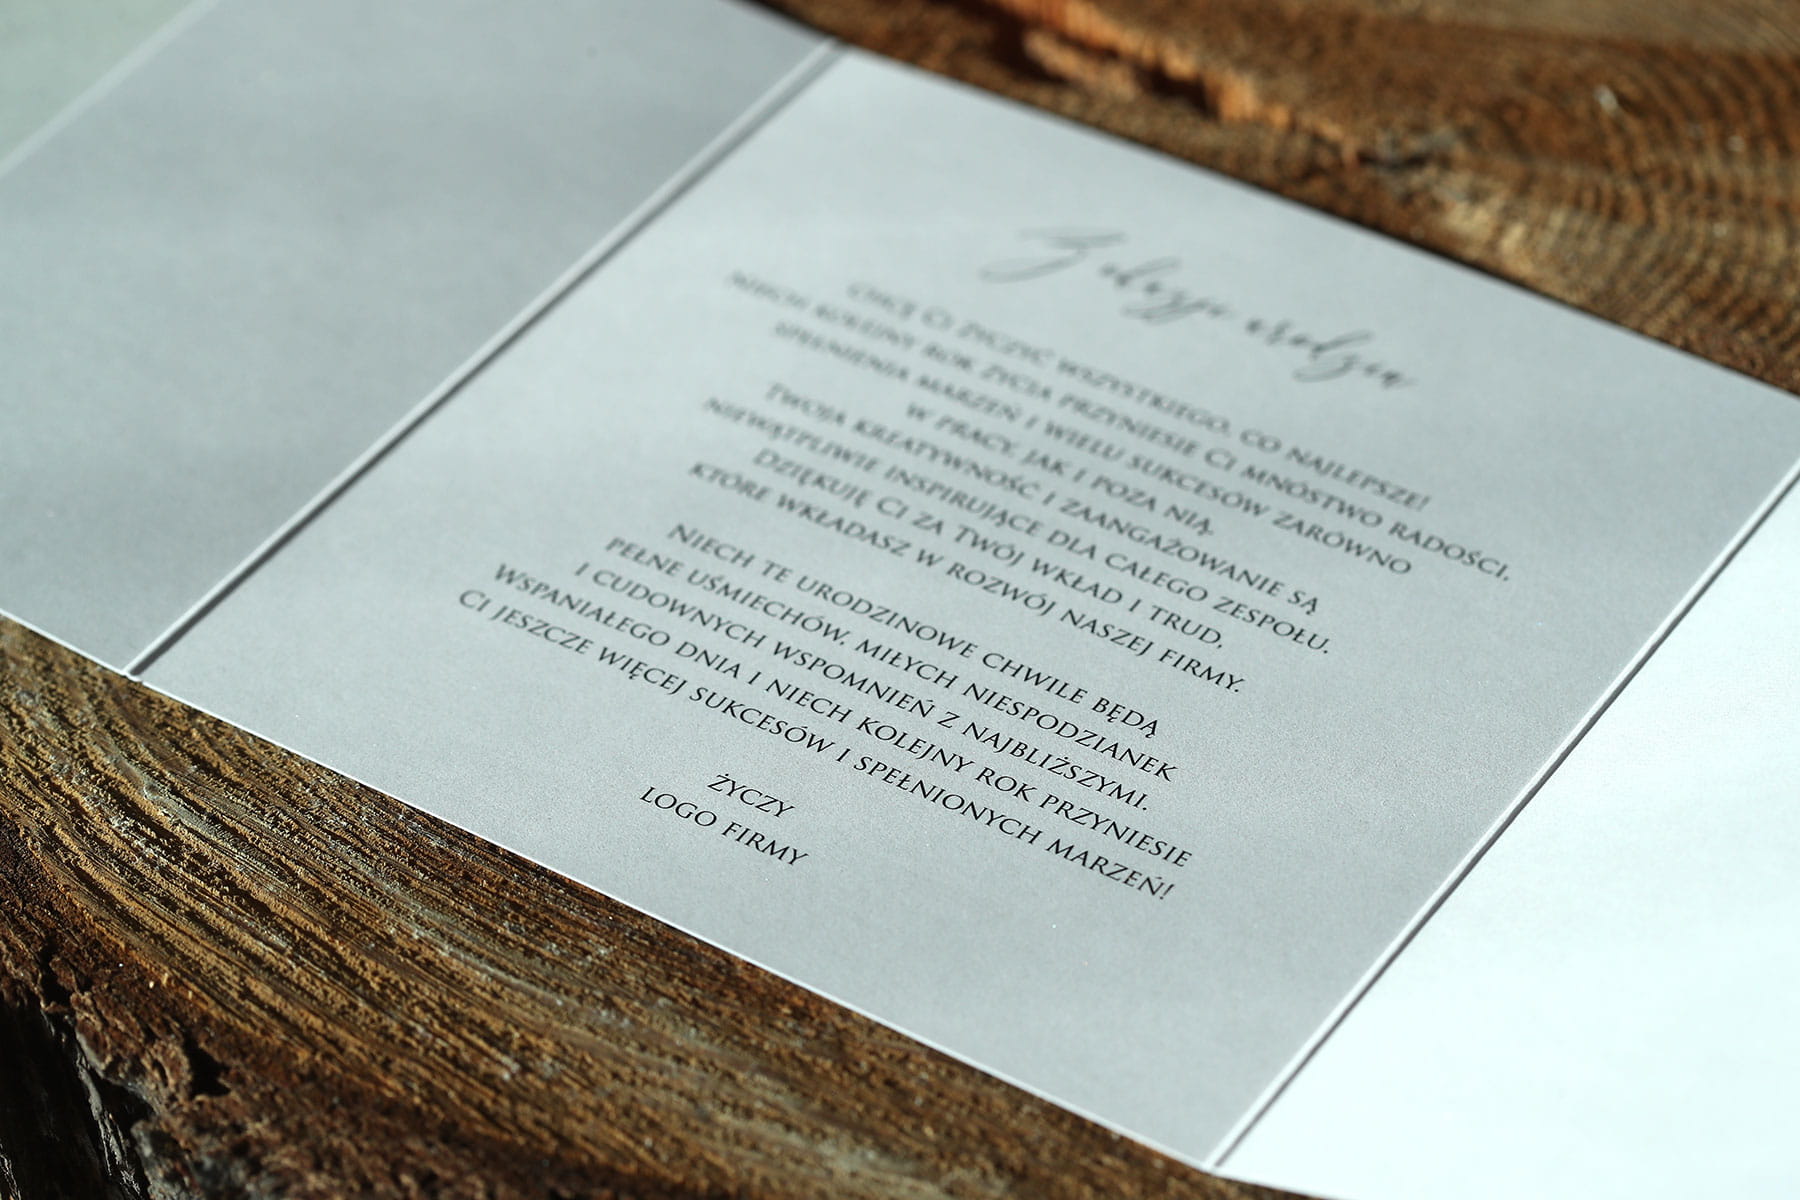 Z okazji urodzin
Chcę Ci życzyć wszystkiego, co najlepsze!
Niech kolejny rok życia przyniesie Ci mnóstwo radości,
spełnienia marzeń i wielu sukcesów zarówno
w pracy, jak i poza nią.
Twoja kreatywność i zaangażowanie są
niewątpliwie inspirujące dla całego zespołu.
Dziękuję Ci za Twój wkład i trud,
które wkładasz w rozwój naszej firmy.
Niech te urodzinowe chwile będą
pełne uśmiechów, miłych niespodzianek
i cudownych wspomnień z najbliższymi.
Wspaniałego dnia i niech kolejny rok przyniesie
Ci jeszcze więcej sukcesów i spełnionych marzeń!
życzy
logo firmy